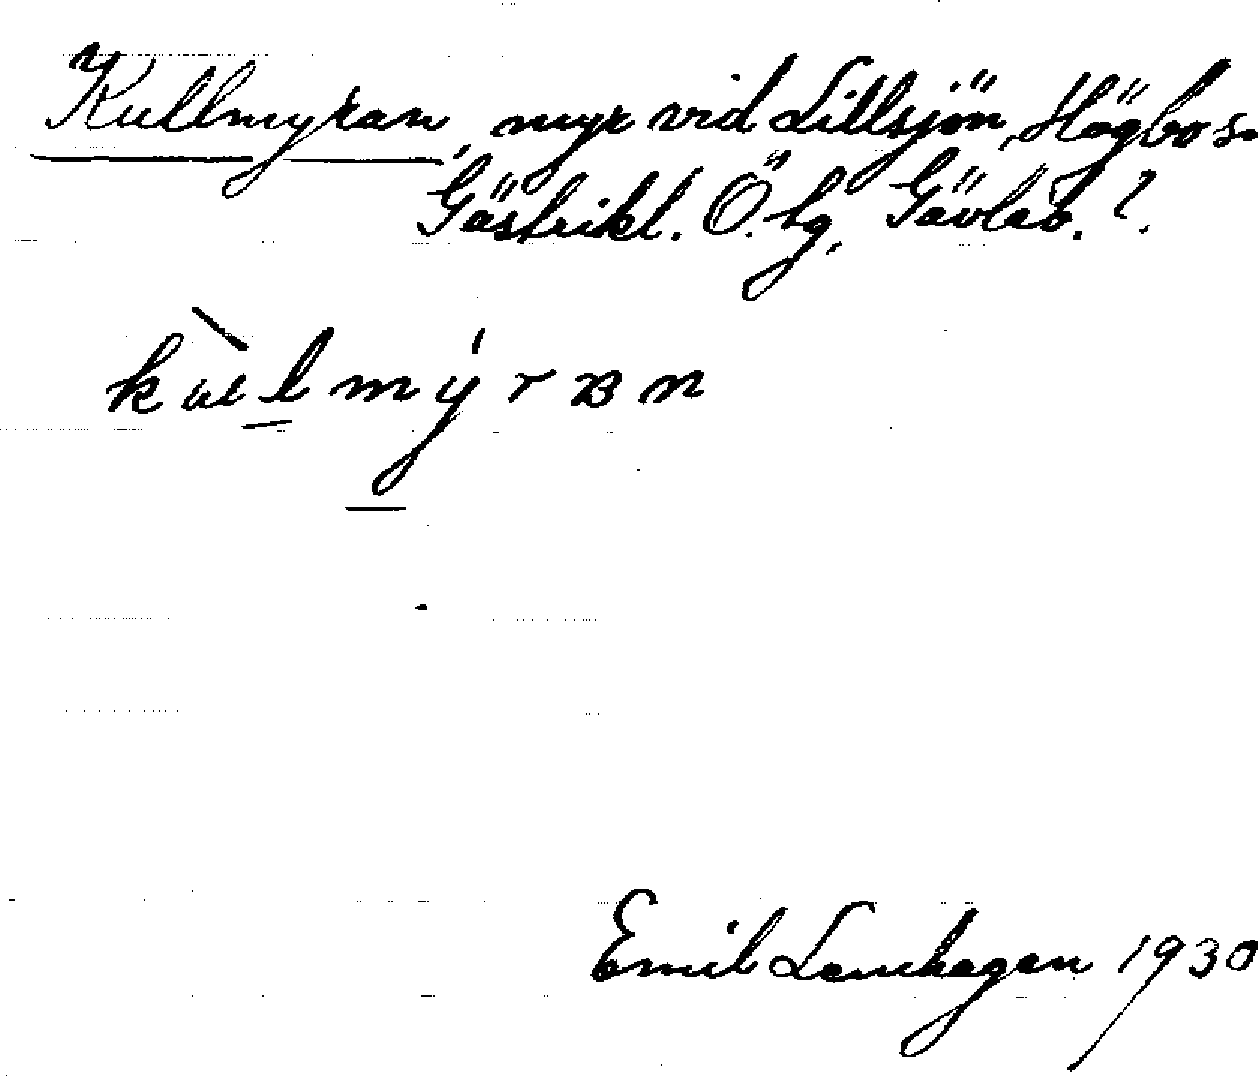 Kullmyran, myr vid Lillsjön, Högbo sn
Gästrikl. Ö. hg, Gävleb. l.
kùl̲mýrɐn
Emil Lenhagen 1930